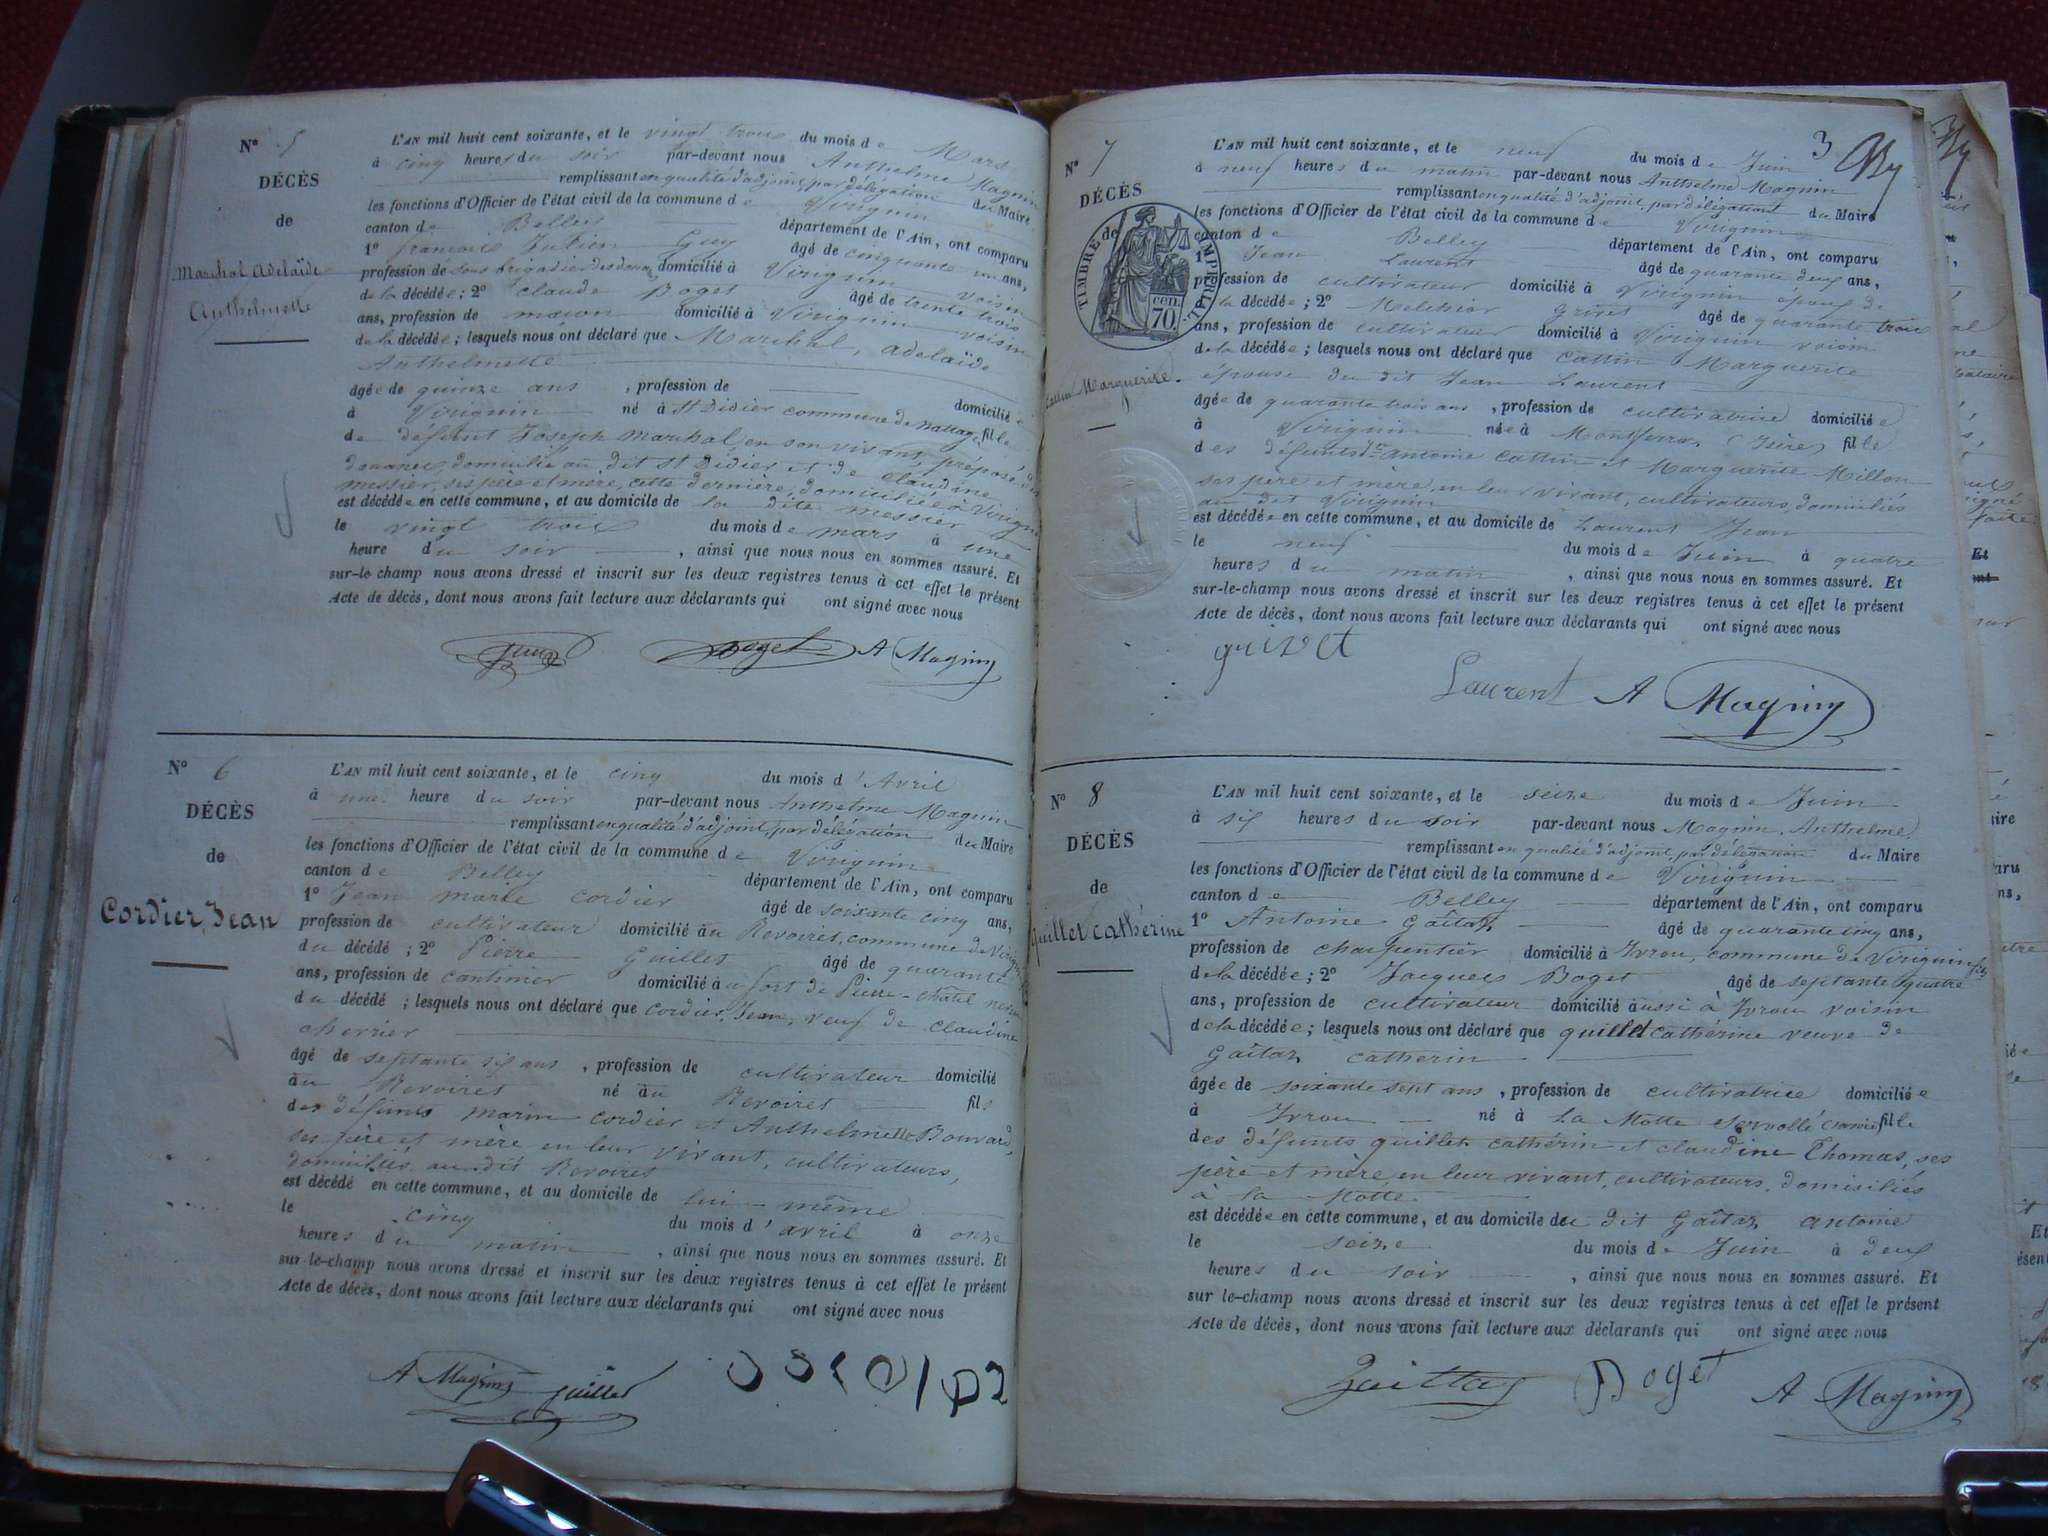 N° 5
DÉCÈS
de
Marchal Adelaïde
Anthelmette
L'AN mil huit cent soixante, et le vingt trois du mois de Mars
à cinq heures du soir par-devant nous Anthelme Magnin
remplissant en qualité d'adjoint, par délégation du Maire
les fonctions d'Officier de l'état civil de la commune de Virignin
canton de Belley département de l'Ain, ont comparu
1° françois Julien Guy âgé de cinquante un ans,
profession de sous brigadier des douanes domicilié à Virignin voisin
de la décédée ; 2° claude Boget âgé de trente trois
ans, profession de maçon domicilié à Virignin voisin
de la décédée ; lesquels nous ont déclaré que Marchal, adelaïde
Anthelmette
âgée de quinze ans , profession de domicilié e
à Virignin né à St Didier commune de Nattages fille
de défunt Joseph Marchal, en son vivant, préposé des
douanes, domicilié au dit St Didier et de claudine
messier, ses père et mère, cette dernière, domiciliée à Virignin
est décédée en cette commune, et au domicile de la dite messier
le vingt trois du mois de mars à une
heure du soir , ainsi que nous nous en sommes assuré. Et
sur-le-champ nous avons dressé et inscrit sur les deux registres tenus à cet effet le présent
Acte de décès, dont nous avons fait lecture aux déclarants qui ont signé avec nous
Boget A Magnin
N° 6
DÉCÈS
de
Cordier, Jean
L'AN mil huit cent soixante, et le cinq du mois d'Avril
à une heure du soir par-devant nous Anthelme Magnin
remplissant en qualité d'adjoint, par délégation du Maire
les fonctions d'Officier de l'état civil de la commune de Virignin
canton de Belley département de l'Ain, ont comparu
1° Jean marie cordier âgé de soixante cinq ans,
profession de cultivateur domicilié au Revoiret, commune de Virignin
du décédé ; 2° Pierre Guillet âgé de quarante
ans, profession de cantinier domicilié au fort de Pierre-châtel neveu
du décédé ; lesquels nous ont déclaré que cordier, Jean, veuf de claudine
cherrier
âgé de septante six ans , profession de cultivateur domicilié
au Revoiret né au Revoiret fils
des défunts marin cordier et Anthelmette Bouvard,
ses père et mère en leur vivant, cultivateurs,
domiciliés au dit Revoiret
est décédé en cette commune, et au domicile de lui-même
le cinq du mois d'avril à onze
heures du matin , ainsi que nous nous en sommes assuré. Et
sur-le-champ nous avons dressé et inscrit sur les deux registres tenus à cet effet le présent
Acte de décès, dont nous avons fait lecture aux déclarants qui ont signé avec nous
A Magnin guillet
3
N° 7
DÉCÈS
de
TIMBRE IMPERIAL
70 cen.
Cattin Marguerite.
L'AN mil huit cent soixante, et le neuf du mois de Juin
à neuf heures du matin par-devant nous Anthelme Magnin
remplissant en qualité d'adjoint, par délégation du Maire
les fonctions d'Officier de l'état civil de la commune de Virignin
canton de Belley département de l'Ain, ont comparu
1° Jean Laurent âgé de quarante deux ans,
profession de cultivateur domicilié à Virignin epoux de
de la décédée ; 2° Melchior Grivet âgé de quarante trois
ans, profession de cultivateur domicilié à Virignin voisin
de la décédée ; lesquels nous ont déclaré que Cattin Marguerite
épouse du dit Jean Laurent
âgée de quarante trois ans , profession de cultivatrice domicilié e
à Virignin née à Montferra, (Isère) fille
des défunts Antoine Cattin et Marguerite Millon
ses père et mère, en leur vivant, cultivateurs, domiciliés
au dit Virignin
est décédée en cette commune, et au domicile de Laurent Jean
le neuf du mois de Juin à quatre
heures du matin , ainsi que nous nous en sommes assuré. Et
sur-le-champ nous avons dressé et inscrit sur les deux registres tenus à cet effet le présent
Acte de décès, dont nous avons fait lecture aux déclarants qui ont signé avec nous
grivet
Laurent A Magnin
N° 8
DÉCÈS
de
Quillet cathérine
L'AN mil huit cent soixante, et le seize du mois de Juin
à six heures du soir par-devant nous Magnin, Anthelme
remplissant en qualité d'adjoint, par délégation du Maire
les fonctions d'Officier de l'état civil de la commune de Virignin
canton de Belley département de l'Ain, ont comparu
1° Antoine Gaîtaz âgé de quarante cinq ans,
profession de charpentier domicilié à Ivrou, commune de Virignin fils
de la décédée ; 2° Jacques Boget âgé de septante quatre
ans, profession de cultivateur domicilié aussi à Ivrou voisin
de la décédée ; lesquels nous ont déclaré que quillet cathérine veuve de
Gaîtaz catherin
âgée de soixante sept ans , profession de cultivatrice domicilié e
à Ivrou né à La Motte fille
des défunts quillet cathérin et claudine Thomas, ses
père et mère, en leur vivant, cultivateurs, domiciliés
à la Motte
est décédée en cette commune, et au domicile du dit Gaîtaz antoine
le seize du mois de Juin à deux
heures du soir , ainsi que nous nous en sommes assuré. Et
sur le-champ nous avons dressé et inscrit sur les deux registres tenus à cet effet le présent
Acte de décès, dont nous avons fait lecture aux déclarants qui ont signé avec nous
Gaittaz Boget A Magnin